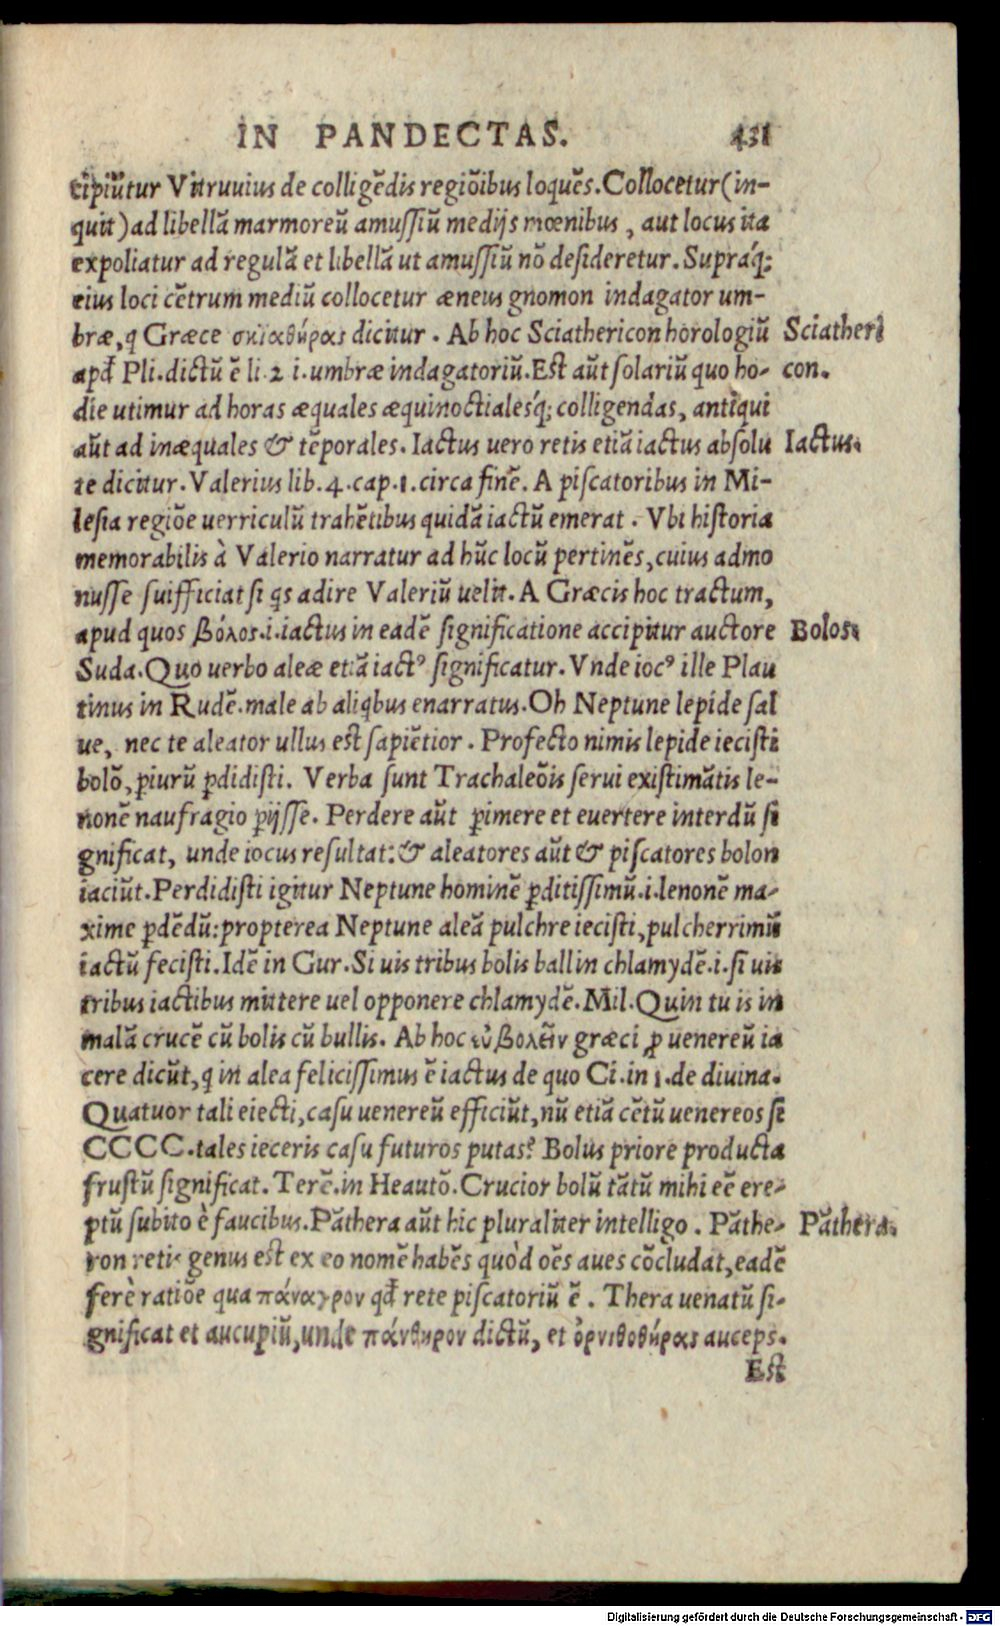 IN PANDECTAS. 431
cipiūtur Vitruvius de colligēdis regiōibus loquēs. Collocetur (in-
quit) ad libellā marmoreū amussiū medijs mœnibus, aut locus ita
expoliatur ad regulā et libellā ut amussiū nō desideretur. Supráq;
eius loci cētrum mediū collocetur æneus gnomon indagator um-
bræ, q Græce σκιαθήρας dicitur. Ab hoc Sciathericon horologiū
Sciatheri
apđ Pli. dictū ē li. 2 1. umbræ indagatoriū. Est aūt solariū quo ho-
con.
die utimur ad horas æquales æquinoctialésq; colligendas, antiqui
aūt ad inæquales & tēporales. Iactus uero retis etiā iactus absolu
Iactus.
te dicitur. Valerius lib. 4. cap. 1. circa finē. A piscatoribus in Mi-
lesia regiōe uerriculū trahētibus quidā iactū emerat. Vbi historia
memorabilis à Valerio narratur ad hūc locū pertinēs, cuius admo
nusse suifficiat si qs adire Valeriū uelit. A Græcis hoc tractum,
apud quos βόλος .i. iactus in eadē significatione accipitur auctore
Bolos.
Suda. Quo uerbo aleæ etiā iactꝰ significatur. Vnde iocꝰ ille Plau
tinus in Rudē. male ab aliqbus enarratus. Oh Neptune lepide sal
ue, nec te aleator ullus est sapiētior. Profecto nimis lepide iecisti
bolō, ꝑiurū ꝑdidisti. Verba sunt Trachaleōis serui existimātis le-
nonē naufragio ꝑijsse. Perdere aūt ꝑimere et euertere interdū si
gnificat, unde iocus resultat: & aleatores aūt & piscatores bolon
iaciūt. Perdidisti igitur Neptune hominē ꝑditissimū .i. lenonē ma-
xime ꝑdēdū: propterea Neptune aleā pulchre iecisti, pulcherrimū
iactū fecisti. Idē in Gur. Si uis tribus bolis ballin chlamydē .i. si uis
tribus iactibus mittere uel opponere chlamydē. Mil. Quin tu is in
malā crucē cū bolis cū bullis. Ab hoc εὐβολεῖν græci ꝓ uenereū ia
cere dicūt, q in alea felicissimus ē iactus de quo Ci. in 1. de diuina.
Quatuor tali eiecti, casu uenereū efficiūt, nū etiā cētū uenereos si
CCCC. tales ieceris casu futuros putas? Bolus priore producta
frustū significat. Terē. in Heautō. Crucior bolū tātū mihi eē ere-
ptū subito è faucibus. Pāthera aūt hic pluraliter intelligo. Pāthe-
Pāthera.
ron retis genus est ex eo nomē habēs quòd oēs aues cōcludat, eadē
ferè ratiōe qua πάναγρον qđ rete piscatoriū ē. Thera uenatū si-
gnificat et aucupiū, unde πάνθηρον dictū, et ὀρνιθοθήρας auceps.
Est
Digitalisierung gefördert durch die Deutsche Forschungsgemeinschaft - DFG